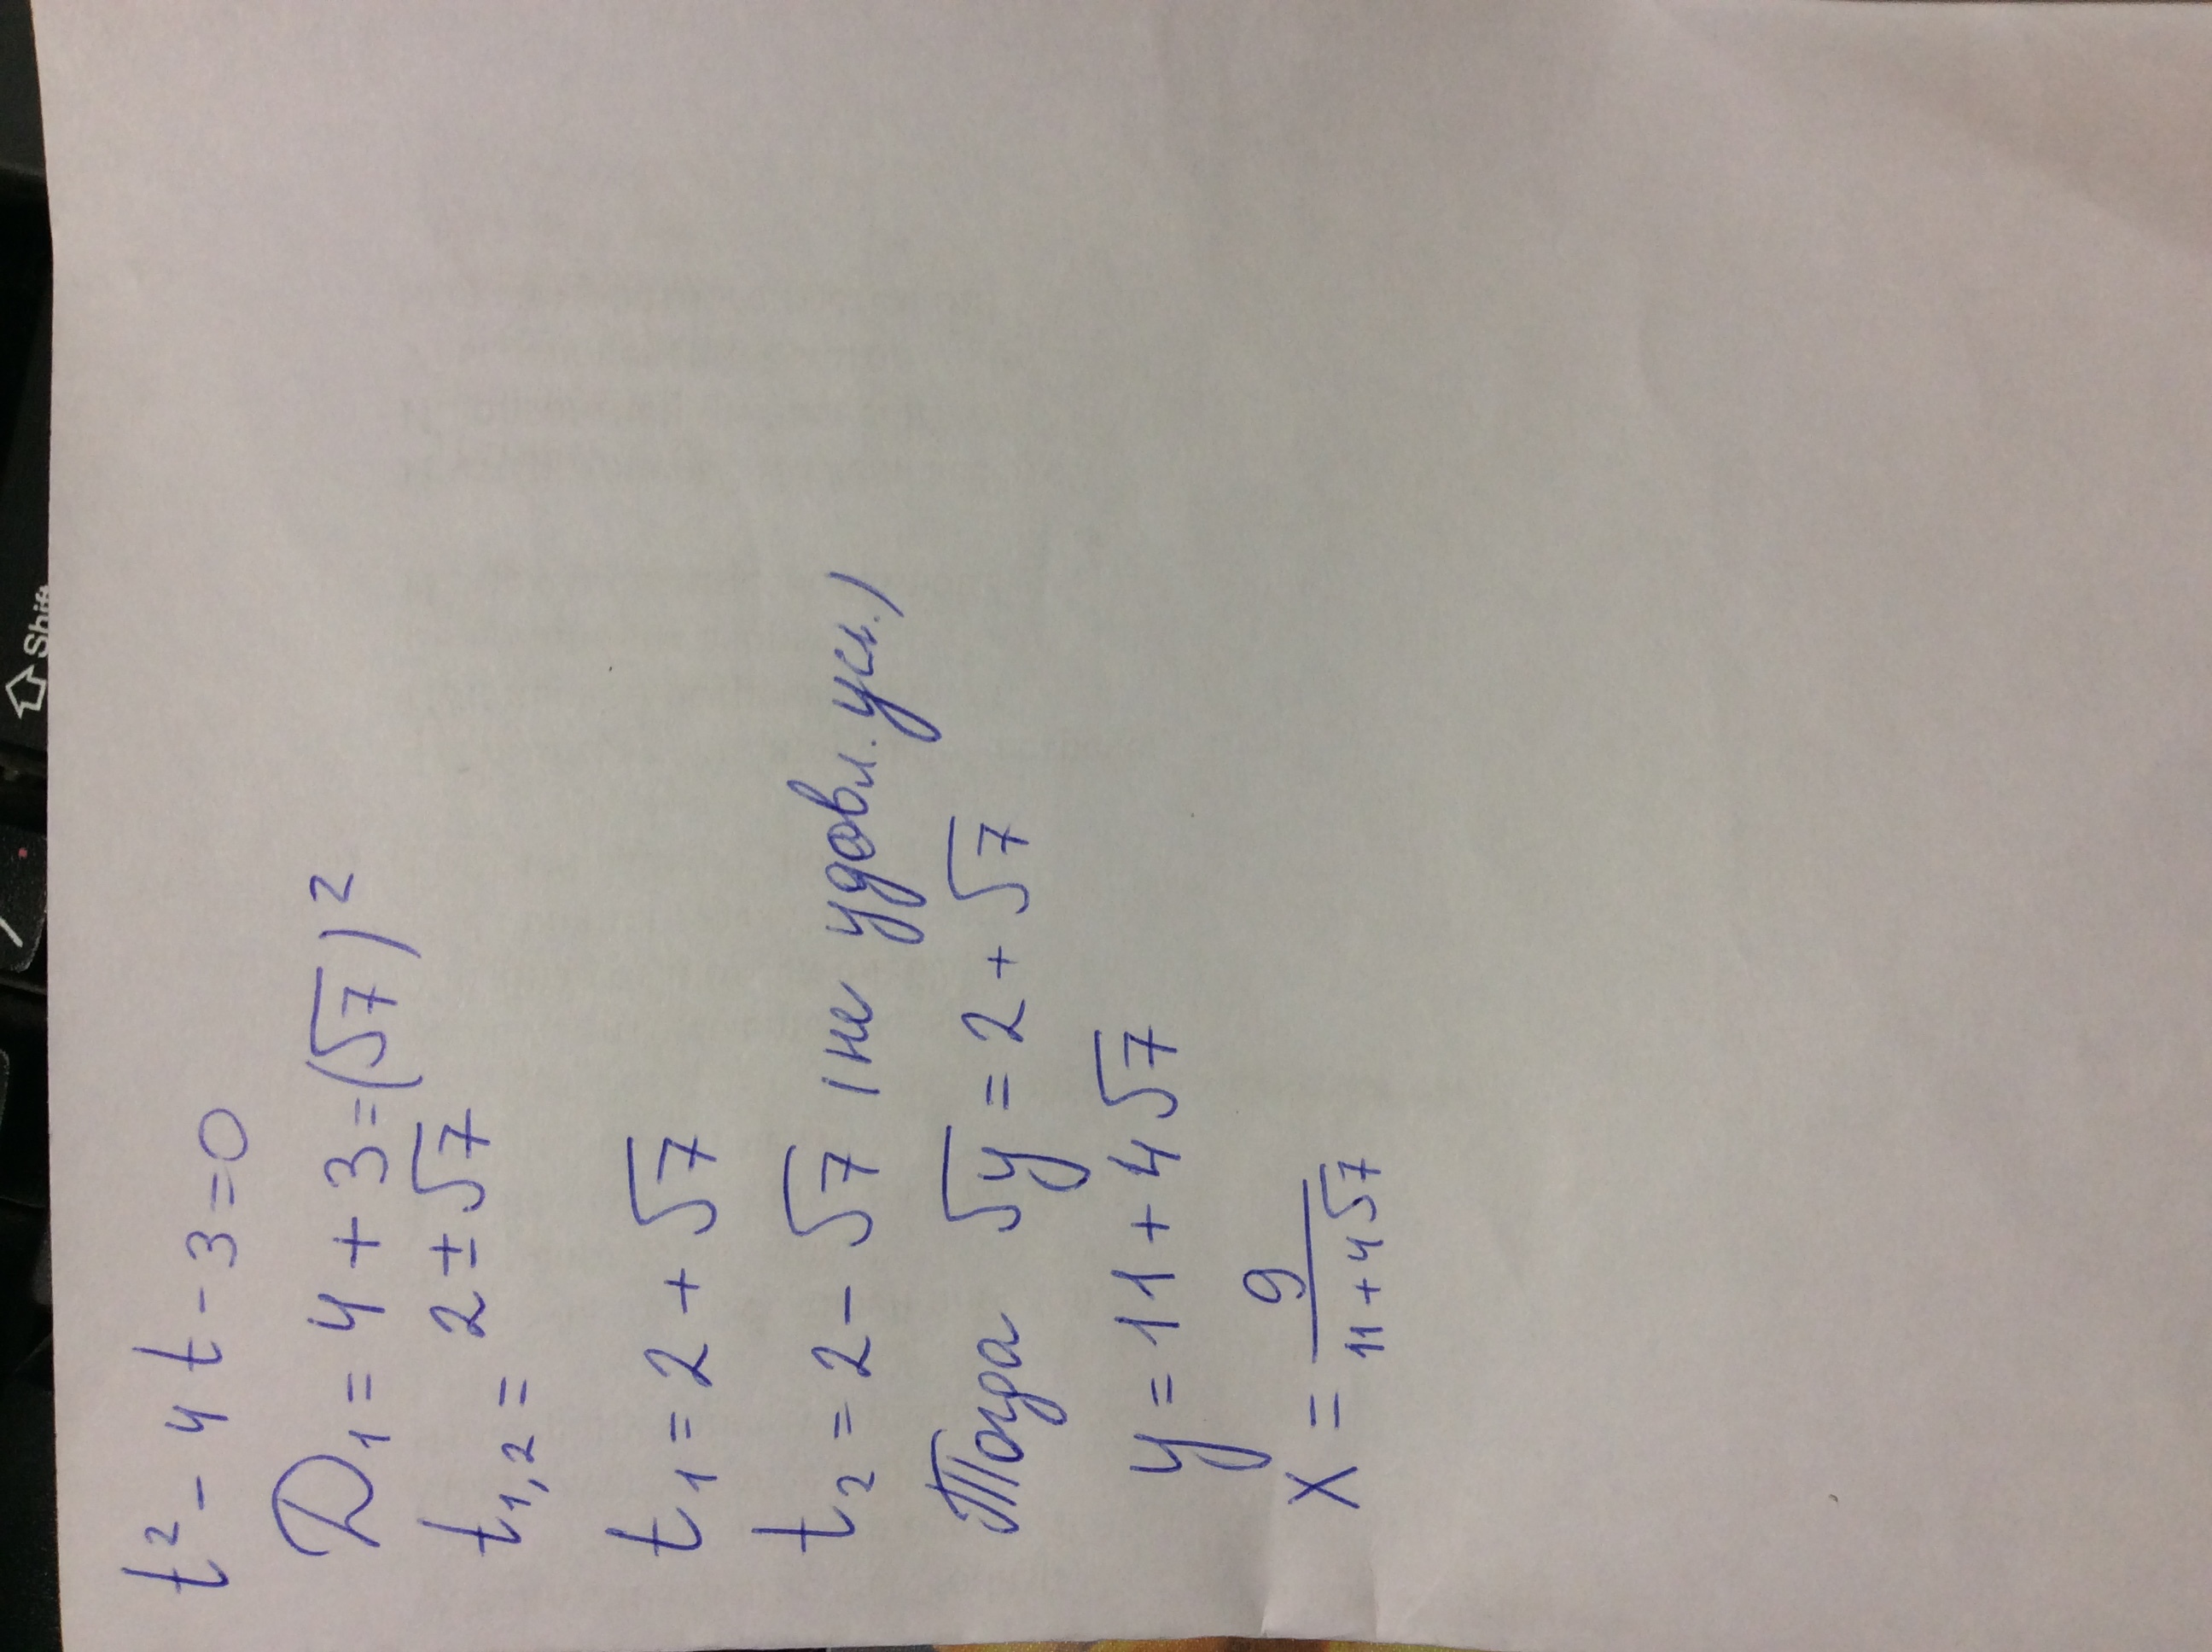 t² - 4t - 3 = 0
D₁ = 4 + 3 = (√7)²
t₁,₂ = 2 ± √7
t₁ = 2 + √7
t₂ = 2 - √7 (не удовл. усл.)
Тогда √y = 2 + √7
y = 11 + 4√7
x = 9/(11 + 4√7)
Shift